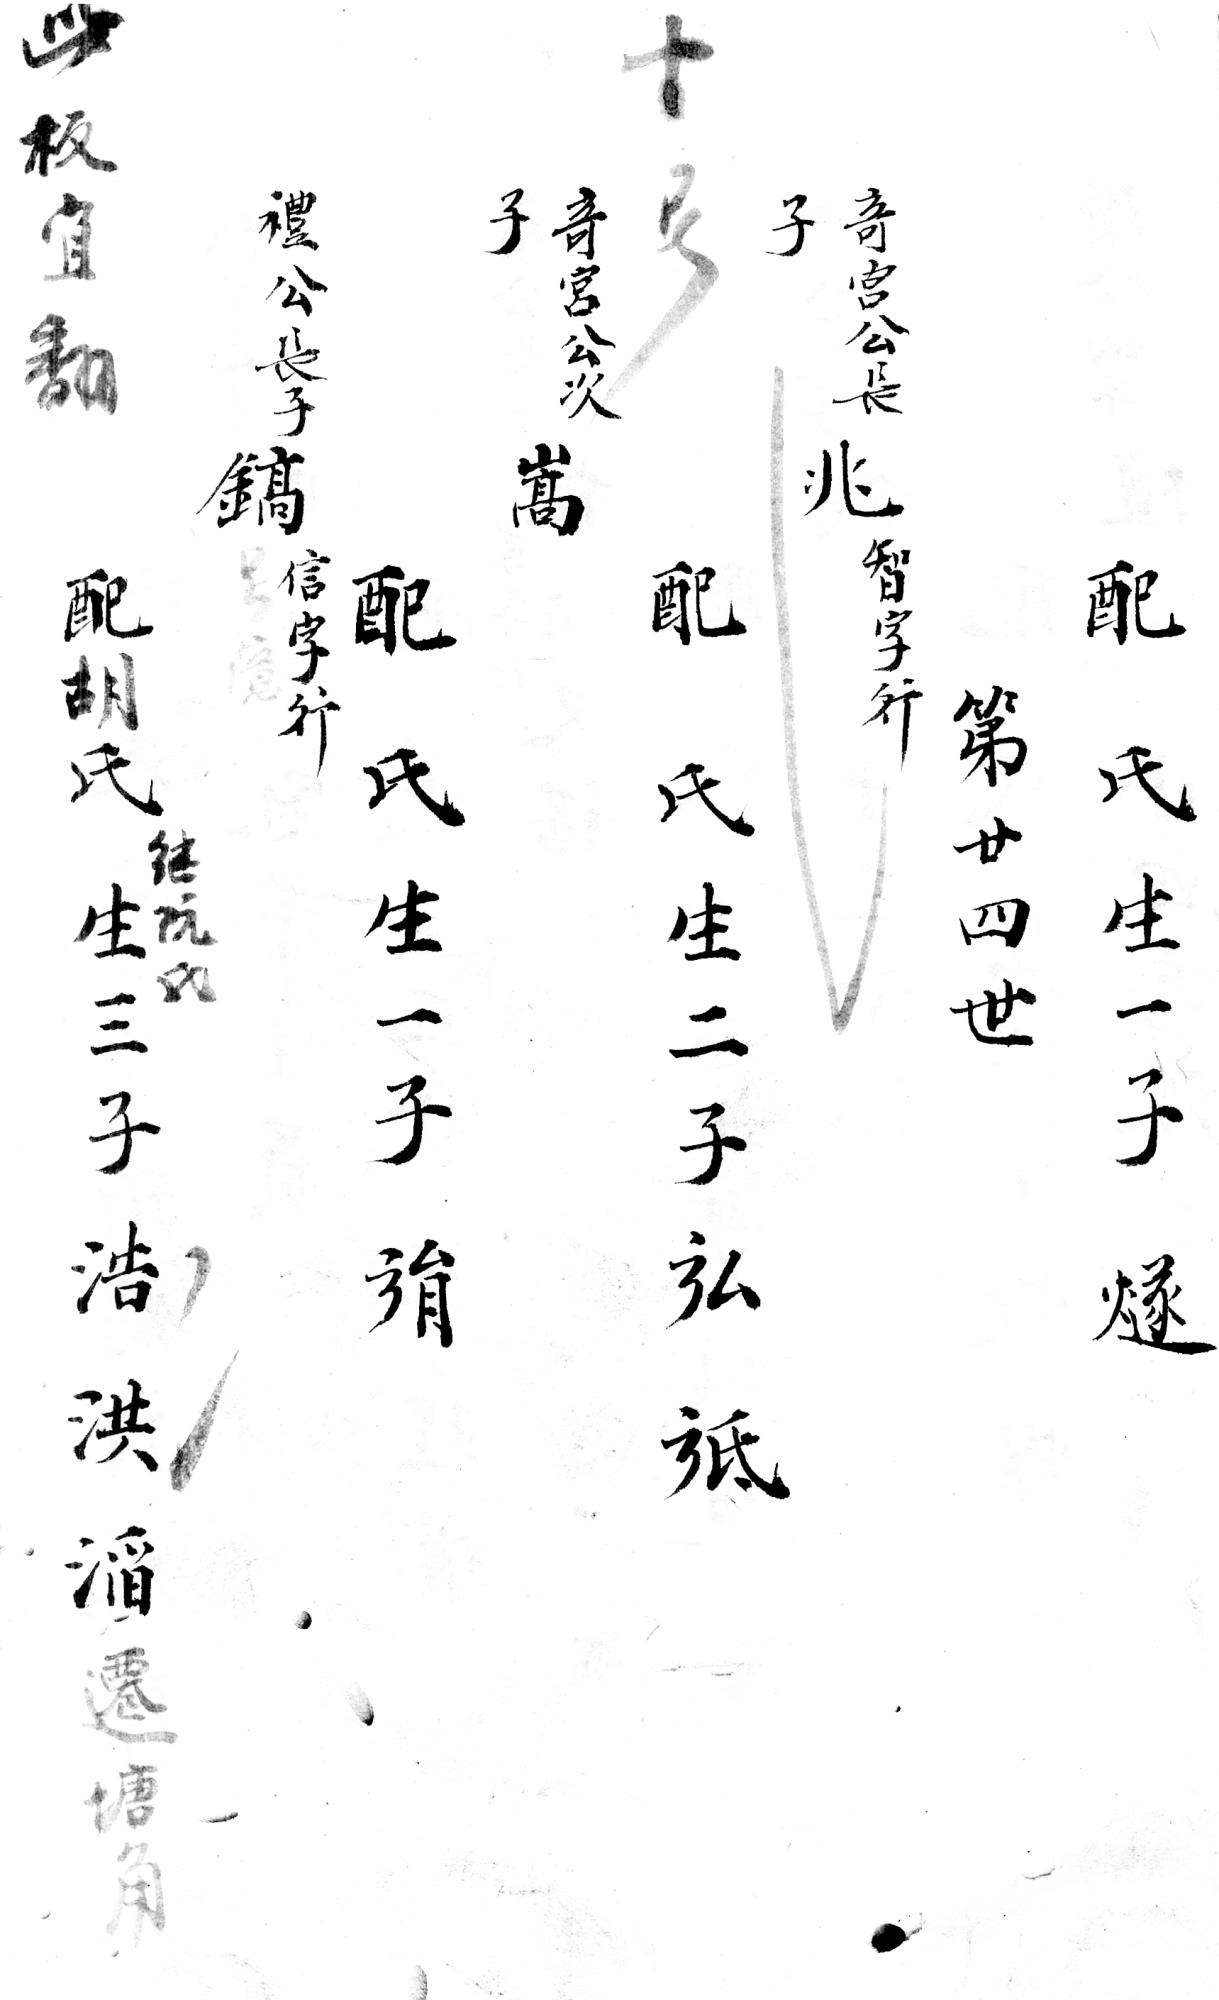 配 氏生一子 燧
第廿四世
奇宮公長
子
兆
智字行
配 氏生二子 弘
十
奇宮公次
子
嵩
配 氏生一子
禮公長子
鎬
信字行
配胡氏
继阮氏
生三子 浩 洪 滔
遷塘角
此板宜翻